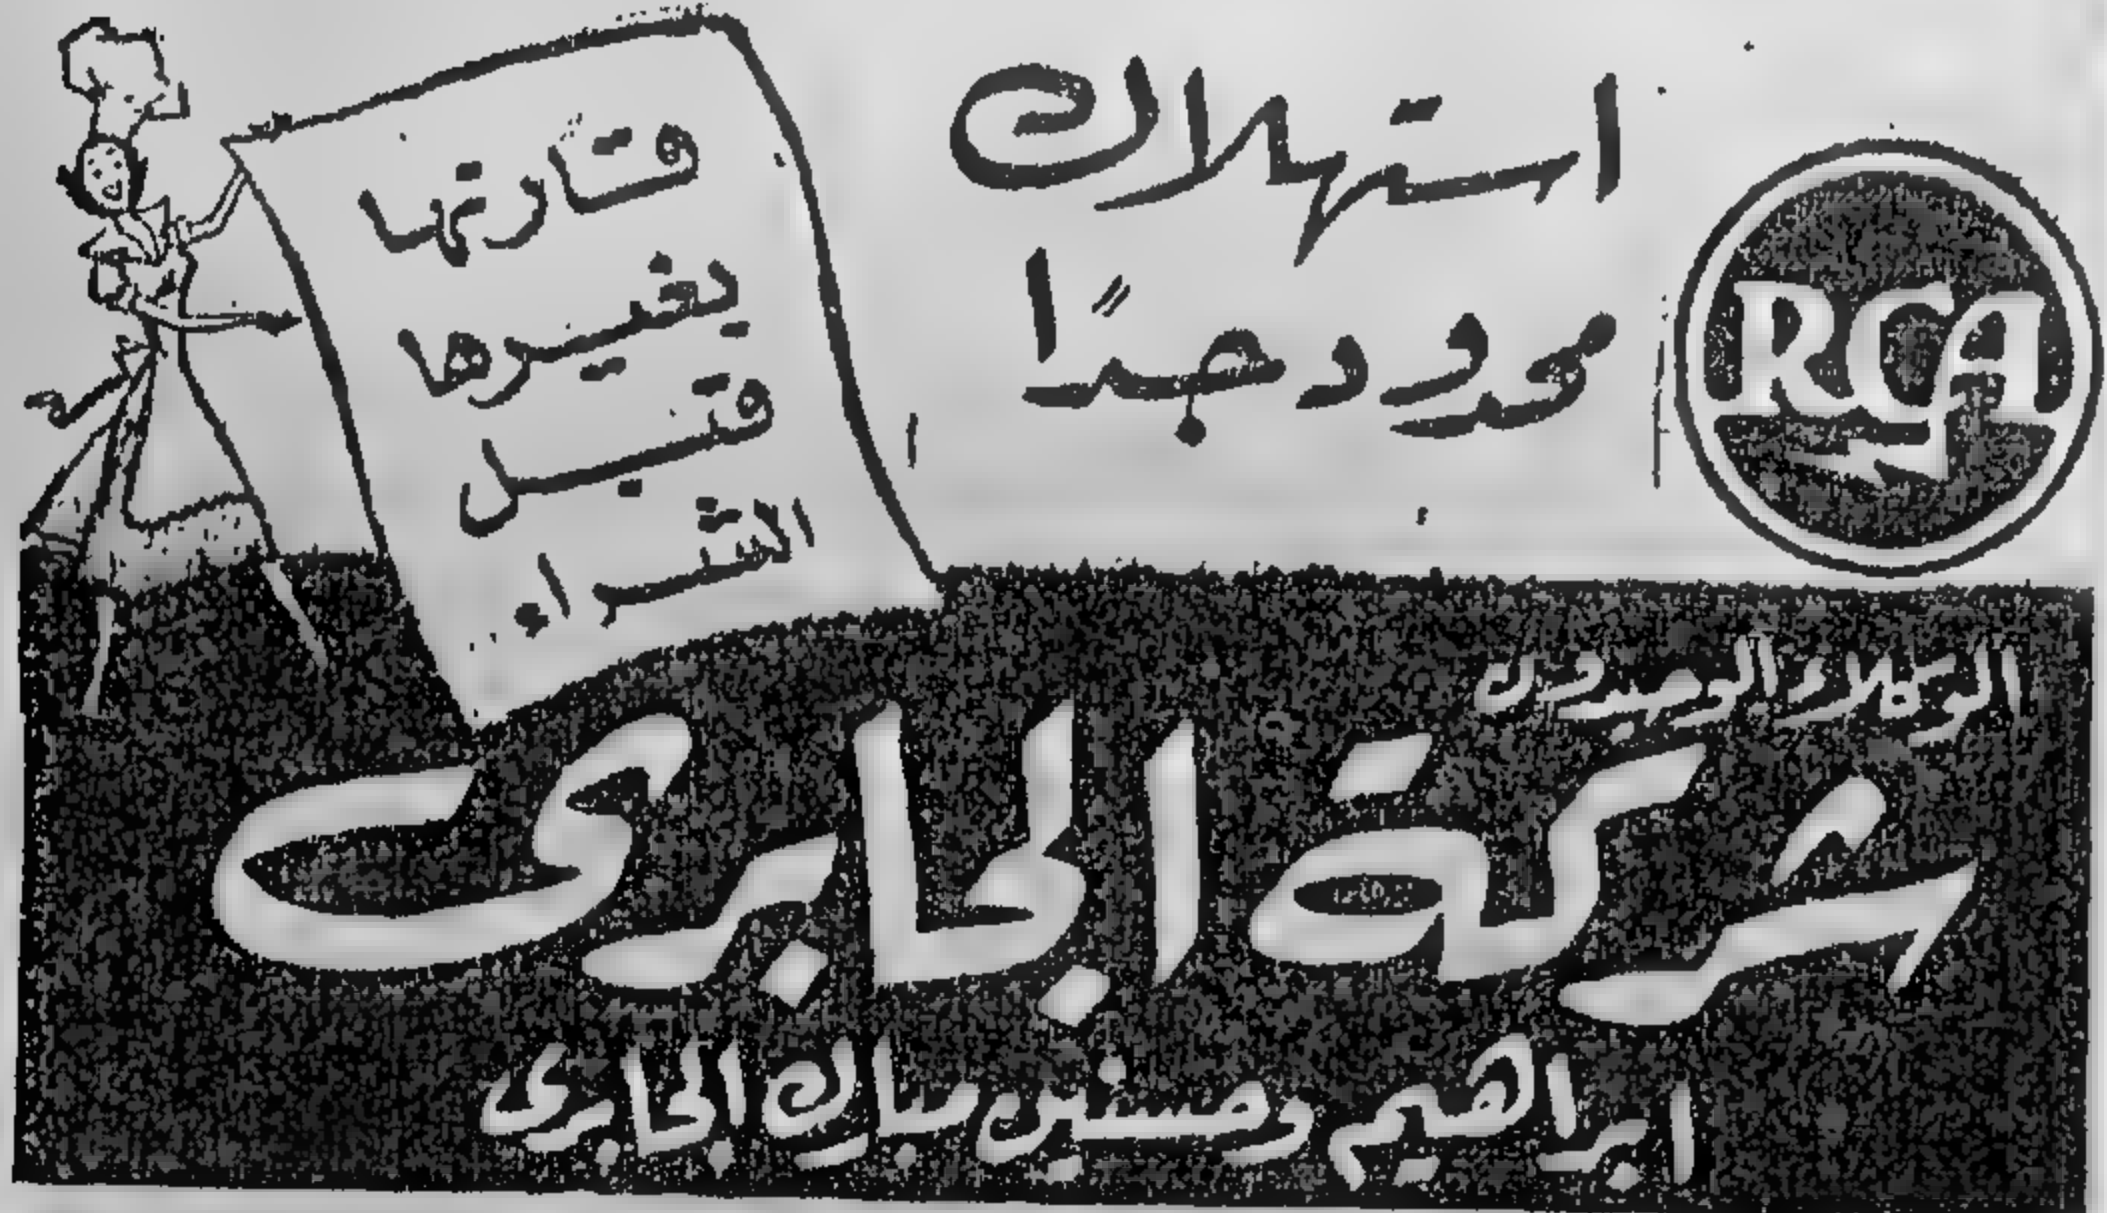 استهلاك
محدود جدًا
RCA
قارنها
بغيرها
قبل
الشراء
الوكلاء الوحيدون
شركة الجابرى
ابراهيم وحسنين مبارك الجابرى